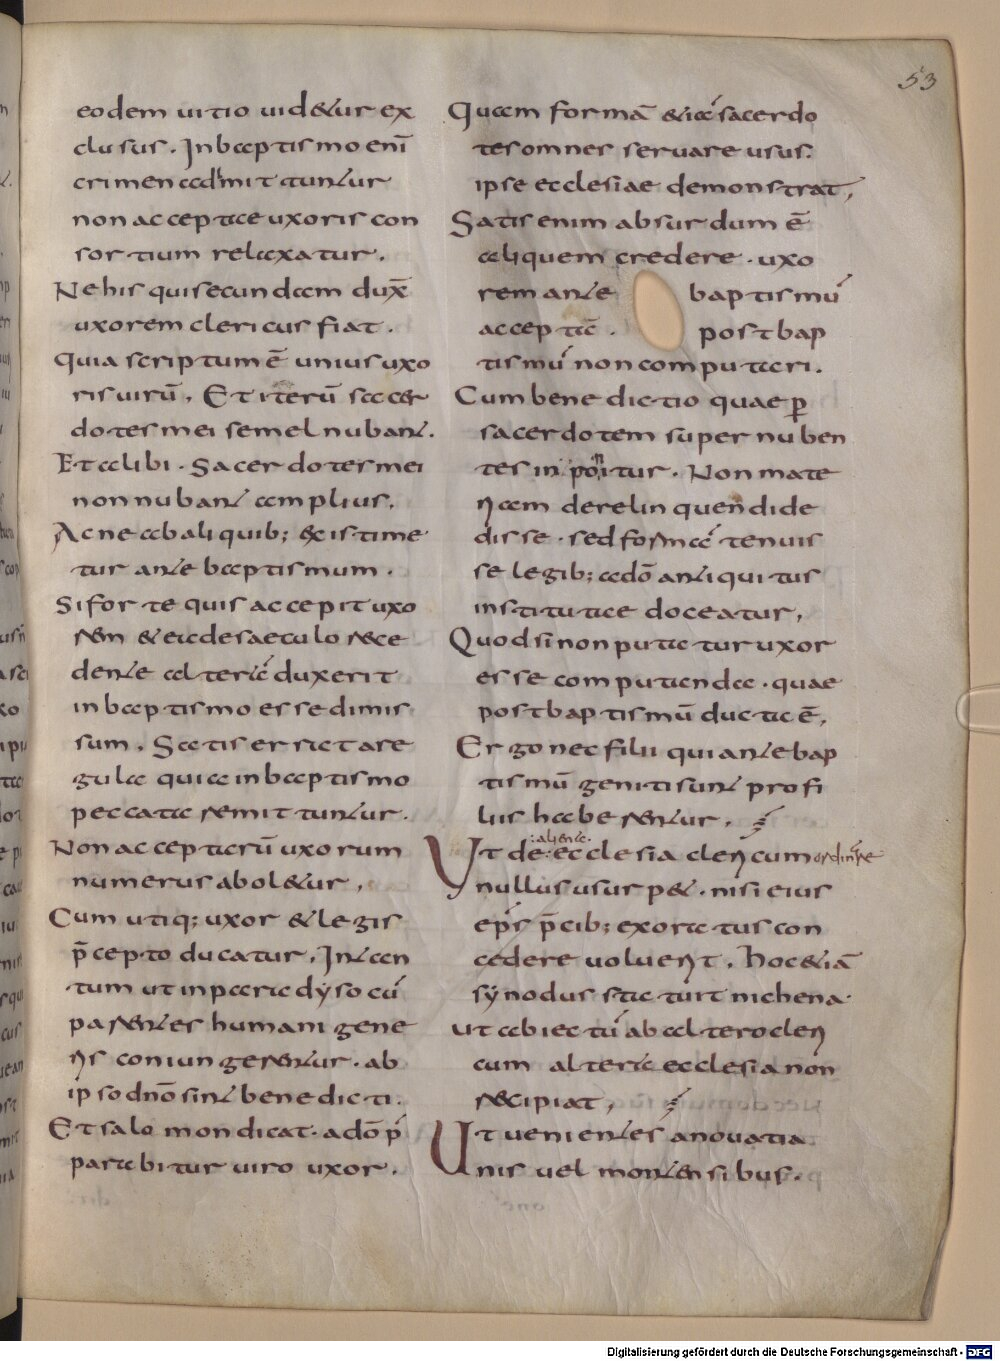 53
eodem uitio uid&ur ex
clusus. In baptismo eni̅
crimen admittuntur
non acceptae uxoris con
sortium relaxatur.
Ne his qui secundam dux̅
uxorem clericus fiat.
Quia scriptum e̅ unius uxo
ris uiru̅. Et iteru̅ sacer
dotes mei semel nubant.
Et alibi. Sacerdotes mei
non nubant amplius.
Ac ne ab aliquib; existime
tur ante baptismum.
Si forte quis accepit uxo
rem & ea de saeculo rece
dente altera̅ duxerit
in baptismo esse dimis
sum. Satis errict a re
gula quia in baptismo
peccata remittuntur.
Non acceptaru̅ uxorum
numerus abol&ur,
Cum utiq; uxor & legis
p̅cepto ducatur. In tan
tum ut in paradyso cu̅
parentes humani gene
ris coniungerentur. ab
ipso dn̅o sint benedicti.
Et salomon dicat. a do̅ p̅
parabitur uiro uxor.
Quam forma̅ &ia̅ sacerdo
tes omnes seruare usus.
ipse ecclesiae demonstrat,
Satis enim absurdum e̅
aliquem credere. uxo
rem ante baptismu̅
accepta̅. post bap
tismu̅ non computari.
Cum benedictio quae p̅
sacerdotem super nuben
tes inponitur. Non mate
riam derelinquendi de
disse. sed forma̅ tenuis
se legib; a do̅ antiquitus
institutae doceatur,
Quod si non putatur uxor
esse computanda. quae
post baptismu̅ ducta e̅,
Ergo nec filii qui ante bap
tismu̅ geniti sunt pro fi
liis haberentur.
:aliena:
Ut de: ecclesia clericum ordinare
nullus usurp&. nisi eius
ep̅s p̅cib; exoratus con
cedere uoluerit. Hoc &ia̅
synodus statuit nichena.
ut abiectu̅ ab altero cleri
cum altera ecclesia non
recipiat,
Ut uenientes a nouatia
nis uel montensibus.
Digitalisierung gefördert durch die Deutsche Forschungsgemeinschaft - DFG